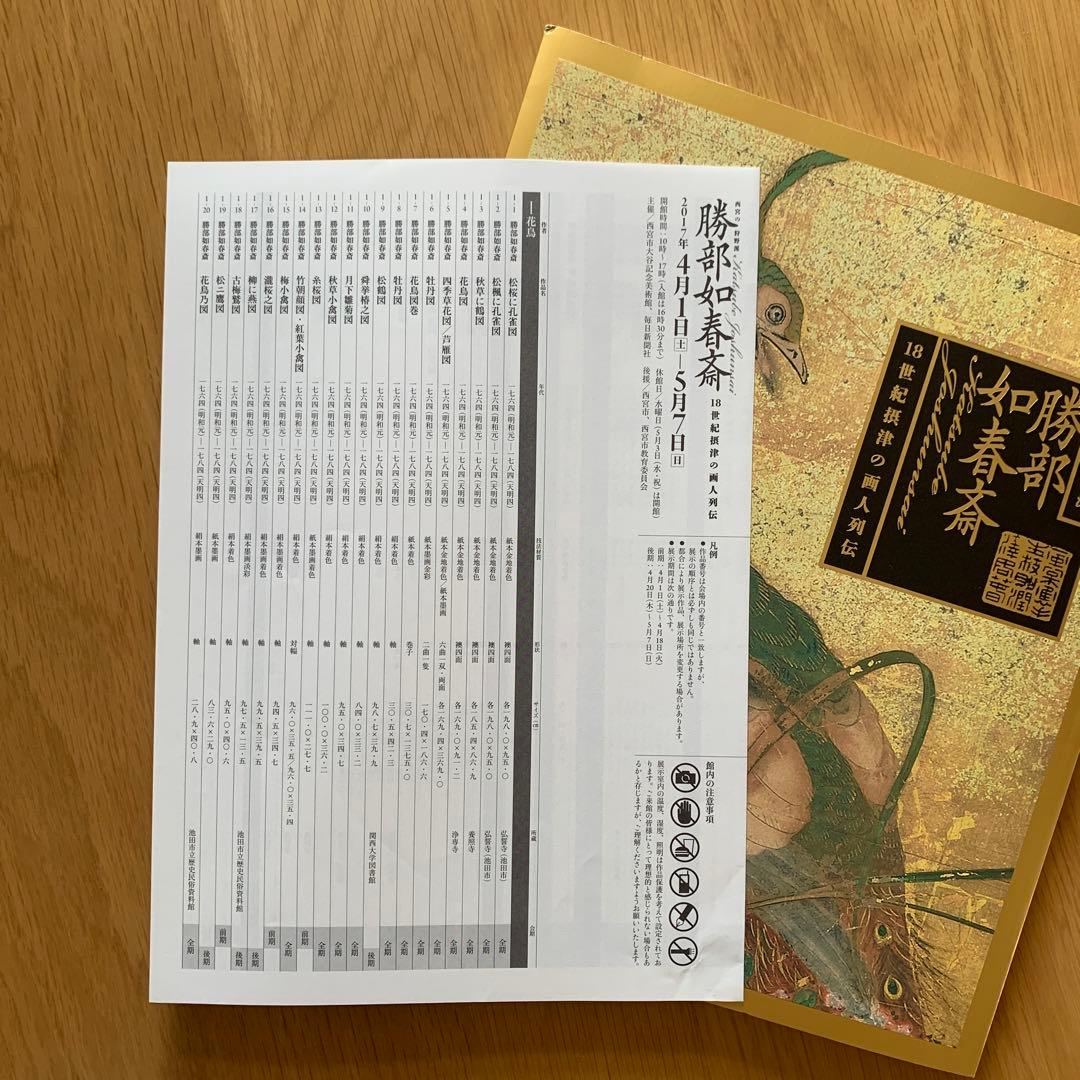 西宮の狩野派
勝部如春斎
18世紀摂津の画人列伝
2017年4月1日[土]―5月7日[日]
開館時間：10時〜17時（入館は16時30分まで） 休館日／水曜日（5月3日（水、祝）は開館）
主催／西宮市大谷記念美術館、毎日新聞社 後援／西宮市、西宮市教育委員会
凡例
●作品番号は会場内の番号と一致しますが、
展示の順序とは必ずしも同じではありません。
●都合により展示作品、展示場所を変更する場合があります。
●展示期間は次の通りです。
前期：4月1日（土）〜4月18日（火）
後期：4月20日（木）〜5月7日（日）
館内の注意事項
展示室内の温度、湿度、照明は作品保護を考えて設定されてお
ります。ご来館の皆様にとって理想的と感じられない場合もあ
るかと存じますが、ご理解くださいますようお願いいたします。
作者 作品名 年代 技法材質 形状 サイズ（㎝） 所蔵 会期
I 花鳥
1-1 勝部如春斎 松桜に孔雀図 一七六四（明和元）―一七八四（天明四） 紙本金地着色 襖四面 各一九八・〇×九五・〇 弘誓寺（池田市） 全期
1-2 勝部如春斎 松楓に孔雀図 一七六四（明和元）―一七八四（天明四） 紙本金地着色 襖四面 各一九八・〇×九五・〇 弘誓寺（池田市） 全期
1-3 勝部如春斎 秋草に鶴図 一七六四（明和元）―一七八四（天明四） 紙本金地着色 襖四面 各一八五・四×八六・九 養照寺 全期
1-4 勝部如春斎 花鳥図 一七六四（明和元）―一七八四（天明四） 紙本金地着色 襖四面 各一六九・〇×九一・二 浄専寺 全期
1-5 勝部如春斎 四季草花図／芦雁図 一七六四（明和元）―一七八四（天明四） 紙本金地着色／紙本墨画 六曲一双・両面 各一六九・四×三六九・〇 全期
1-6 勝部如春斎 牡丹図 一七六四（明和元）―一七八四（天明四） 紙本墨画金彩 二曲一隻 一七〇・四×一八六・六 全期
1-7 勝部如春斎 花鳥図巻 一七六四（明和元）―一七八四（天明四） 紙本着色 巻子 三〇・七×一三七五・〇 全期
1-8 勝部如春斎 牡丹図 一七六四（明和元）―一七八四（天明四） 絹本着色 軸 三〇・五×四二・三 全期
1-9 勝部如春斎 松鶴図 一七六四（明和元）―一七八四（天明四） 絹本着色 軸 九八・七×三九・九 関西大学図書館 後期
1-10 勝部如春斎 舜挙椿之図 一七六四（明和元）―一七八四（天明四） 絹本着色 軸 八四・〇×三三・二 全期
1-11 勝部如春斎 月下雛菊図 一七六四（明和元）―一七八四（天明四） 絹本着色 軸 九五・〇×三四・七 全期
1-12 勝部如春斎 秋草小禽図 一七六四（明和元）―一七八四（天明四） 絹本着色 軸 一〇〇・〇×三六・二 全期
1-13 勝部如春斎 糸桜図 一七六四（明和元）―一七八四（天明四） 紙本墨画着色 軸 一一一・〇×二七・七 前期
1-14 勝部如春斎 竹朝顔図・紅葉小禽図 一七六四（明和元）―一七八四（天明四） 絹本着色 対幅 九六・〇×三五・五／九六・〇×三五・四 全期
1-15 勝部如春斎 梅小禽図 一七六四（明和元）―一七八四（天明四） 絹本着色 軸 九四・五×三四・七 前期
1-16 勝部如春斎 瀧桜之図 一七六四（明和元）―一七八四（天明四） 絹本墨画着色 軸 九九・五×三九・五 後期
1-17 勝部如春斎 柳に燕図 一七六四（明和元）―一七八四（天明四） 絹本墨画淡彩 軸 九七・五×三一・三 池田市立歴史民俗資料館 後期
1-18 勝部如春斎 古梅鷲図 一七六四（明和元）―一七八四（天明四） 絹本着色 軸 九五・〇×四〇・六 前期
1-19 勝部如春斎 松ニ鷹図 一七六四（明和元）―一七八四（天明四） 紙本墨画 軸 八三・六×二九・〇 後期
1-20 勝部如春斎 花鳥乃図 一七六四（明和元）―一七八四（天明四） 絹本墨画 軸 二八・九×四〇・八 池田市立歴史民俗資料館 全期
勝部
如春斎
Katsube Joshunsai
18世紀摂津の画人列伝